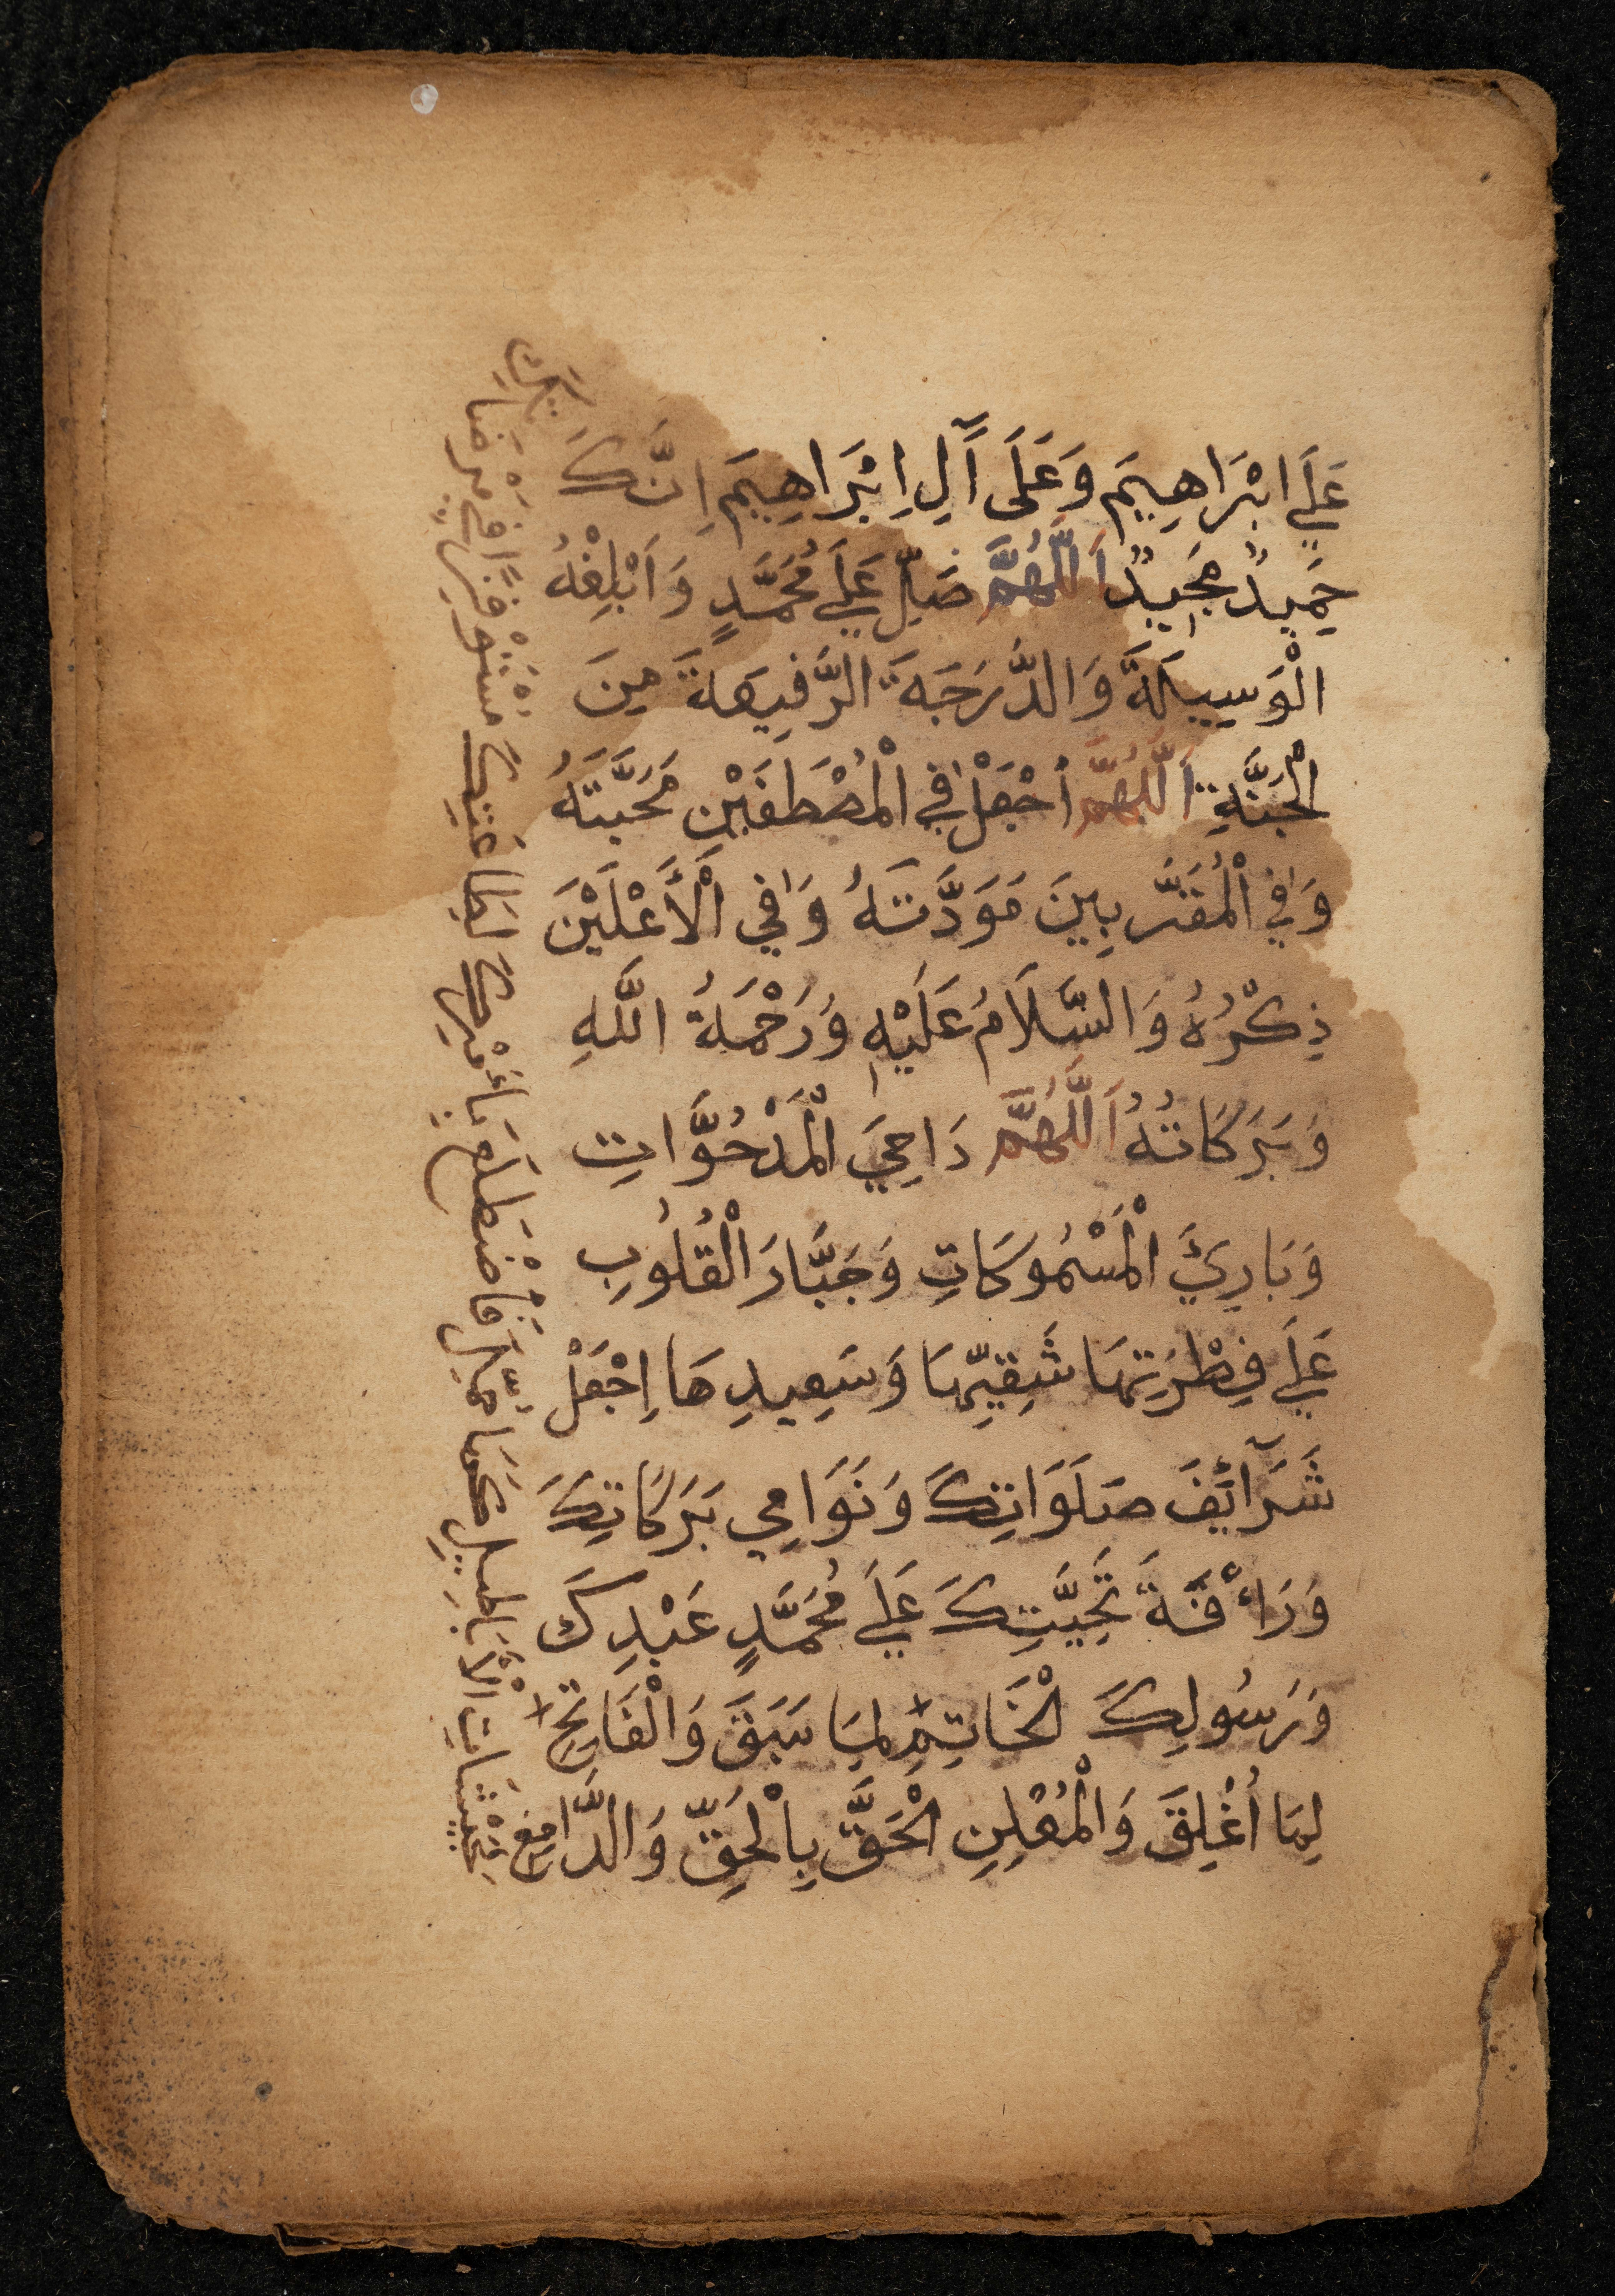 عَلَي ابْرَاهِيمَ وَعَلَى آَلِ اِبْرَاهِيمَ اِنَّكَ
حَمِيدٌ مَجِيدٌ اَللَّهُمَّ صَلِّ عَلَي مُحَمَّدٍ وَاَبْلِغْهُ
الْوَسِيلَةَ وَالدَّرَجَةَ الرَّفِيعَةَ مِنَ
الْجَنَّةِ اَللَّهُمَّ اجْعَلْ فِي الْمُصْطَفَيْنِ مَحَبَّتَهُ
وَفِي الْمُقَرَّبِينَ مَوَدَّتَهُ وَفِي الْأَعْلَيْنَ
ذِكْرُهُ وَالسَّلَامُ عَلَيْهِ وَرَحْمَةُ اللَّهِ
وَبَرَكَاتُهُ اَللَّهُمَّ دَاحِيَ الْمَدْحُوَّاتِ
وَبَارِئَ الْمَسْمُوكَاتِ وَجَبَّارَ الْقُلُوبِ
عَلَي فِطْرَتِهَا شَقِيِّهَا وَسَعِيدِهَا اِجْعَلْ
شَرَآئِفَ صَلَوَاتِكَ وَنَوَامِي بَرَكَاتِكَ
وَرَأْفَةَ تَحِيَّتِكَ عَلَي مُحَمَّدٍ عَبْدِكَ
وَرَسُولِكَ الْخَاتِمِ لِمَا سَبَقَ وَالْفَاتِحِ
لِمَا أُغْلِقَ وَالْمُعْلِنِ الْحَقَّ بِالْحَقِّ وَالدَّامِغِ
لِجَيْشَاتِ الْأَبَاطِيلِ كَمَا حُمِّلَ فَاضْطَلَعَ بِأَمْرِكَ لِطَاعَتِكَ مُسْتَوْفِزًا فِي مَرْضَاتِكَ